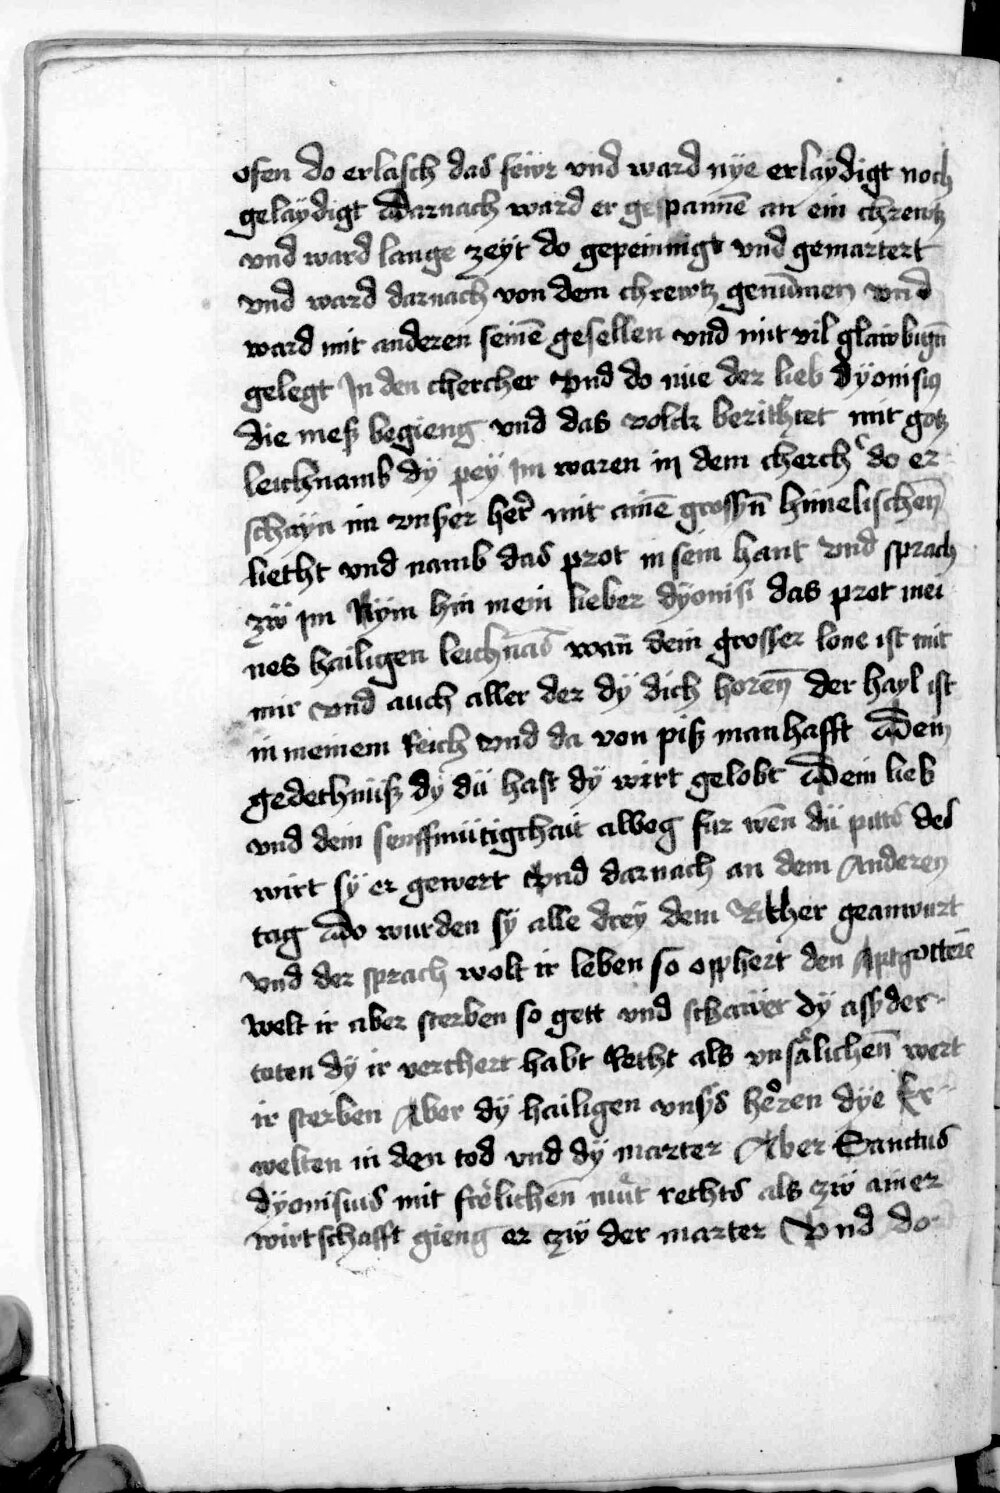 ofen do erlasch das feẅr vnd ward nÿe erlaÿdigt noch
gelaÿdigt Darnach ward er gespannē an ein chrewtz
vnd ward lange zeÿt do gepeinnigt vnd gemartert
vnd ward darnach von dem chrewtz genūmen vnd
ward mit anderen seinē gesellen vnd mit vil glawbign̄
gelegt In den chercher Vnd do nüe der lieb Dÿonisiꝰ
die meß begieng vnd das volck berichtet mit gotz
leichnamb dÿ peÿ im waren in dem cherch̉ do er
schayn im vnser her̉ mit ainē grossn̄ himelischen̄
liecht vnd namb das prot in sein hant vnd sprach
zẅ im Nÿm hin mein lieber dÿonisi das prot mei
nes hailigen leichnās wan̄ dein grosser lone ist mit
mir vnd auch aller der dÿ dich horen̄ der hayl ist
in meinem Reich vnd da von piß manhafft Dein
gedechnüß dÿ dü hast dÿ wirt gelobt Dein lieb
vnd dein senffmütigchait albeg fur wēn dü pittˢ des
wirt sÿ er gewert Vnd darnach an dem Anderen
tag Do wurden sÿ alle dreÿ dem Richer geanwurt
vnd der sprach wolt ir leben so opphert den Aptgotterē
welt ir aber sterben so gett vnd schawet dÿ asß der
toten dÿ ir verchert habt Recht als vnsälichen̄ wert
ir sterben Aber dÿ hailigen vnsˢs heren dÿe Er
welten in den tod vnd dÿ marter Aber Sanctus
dÿonisius mit frölichen̄ müt rechts als zẅ ainer
wirtschafft gieng er czẅ der marter Vnd do